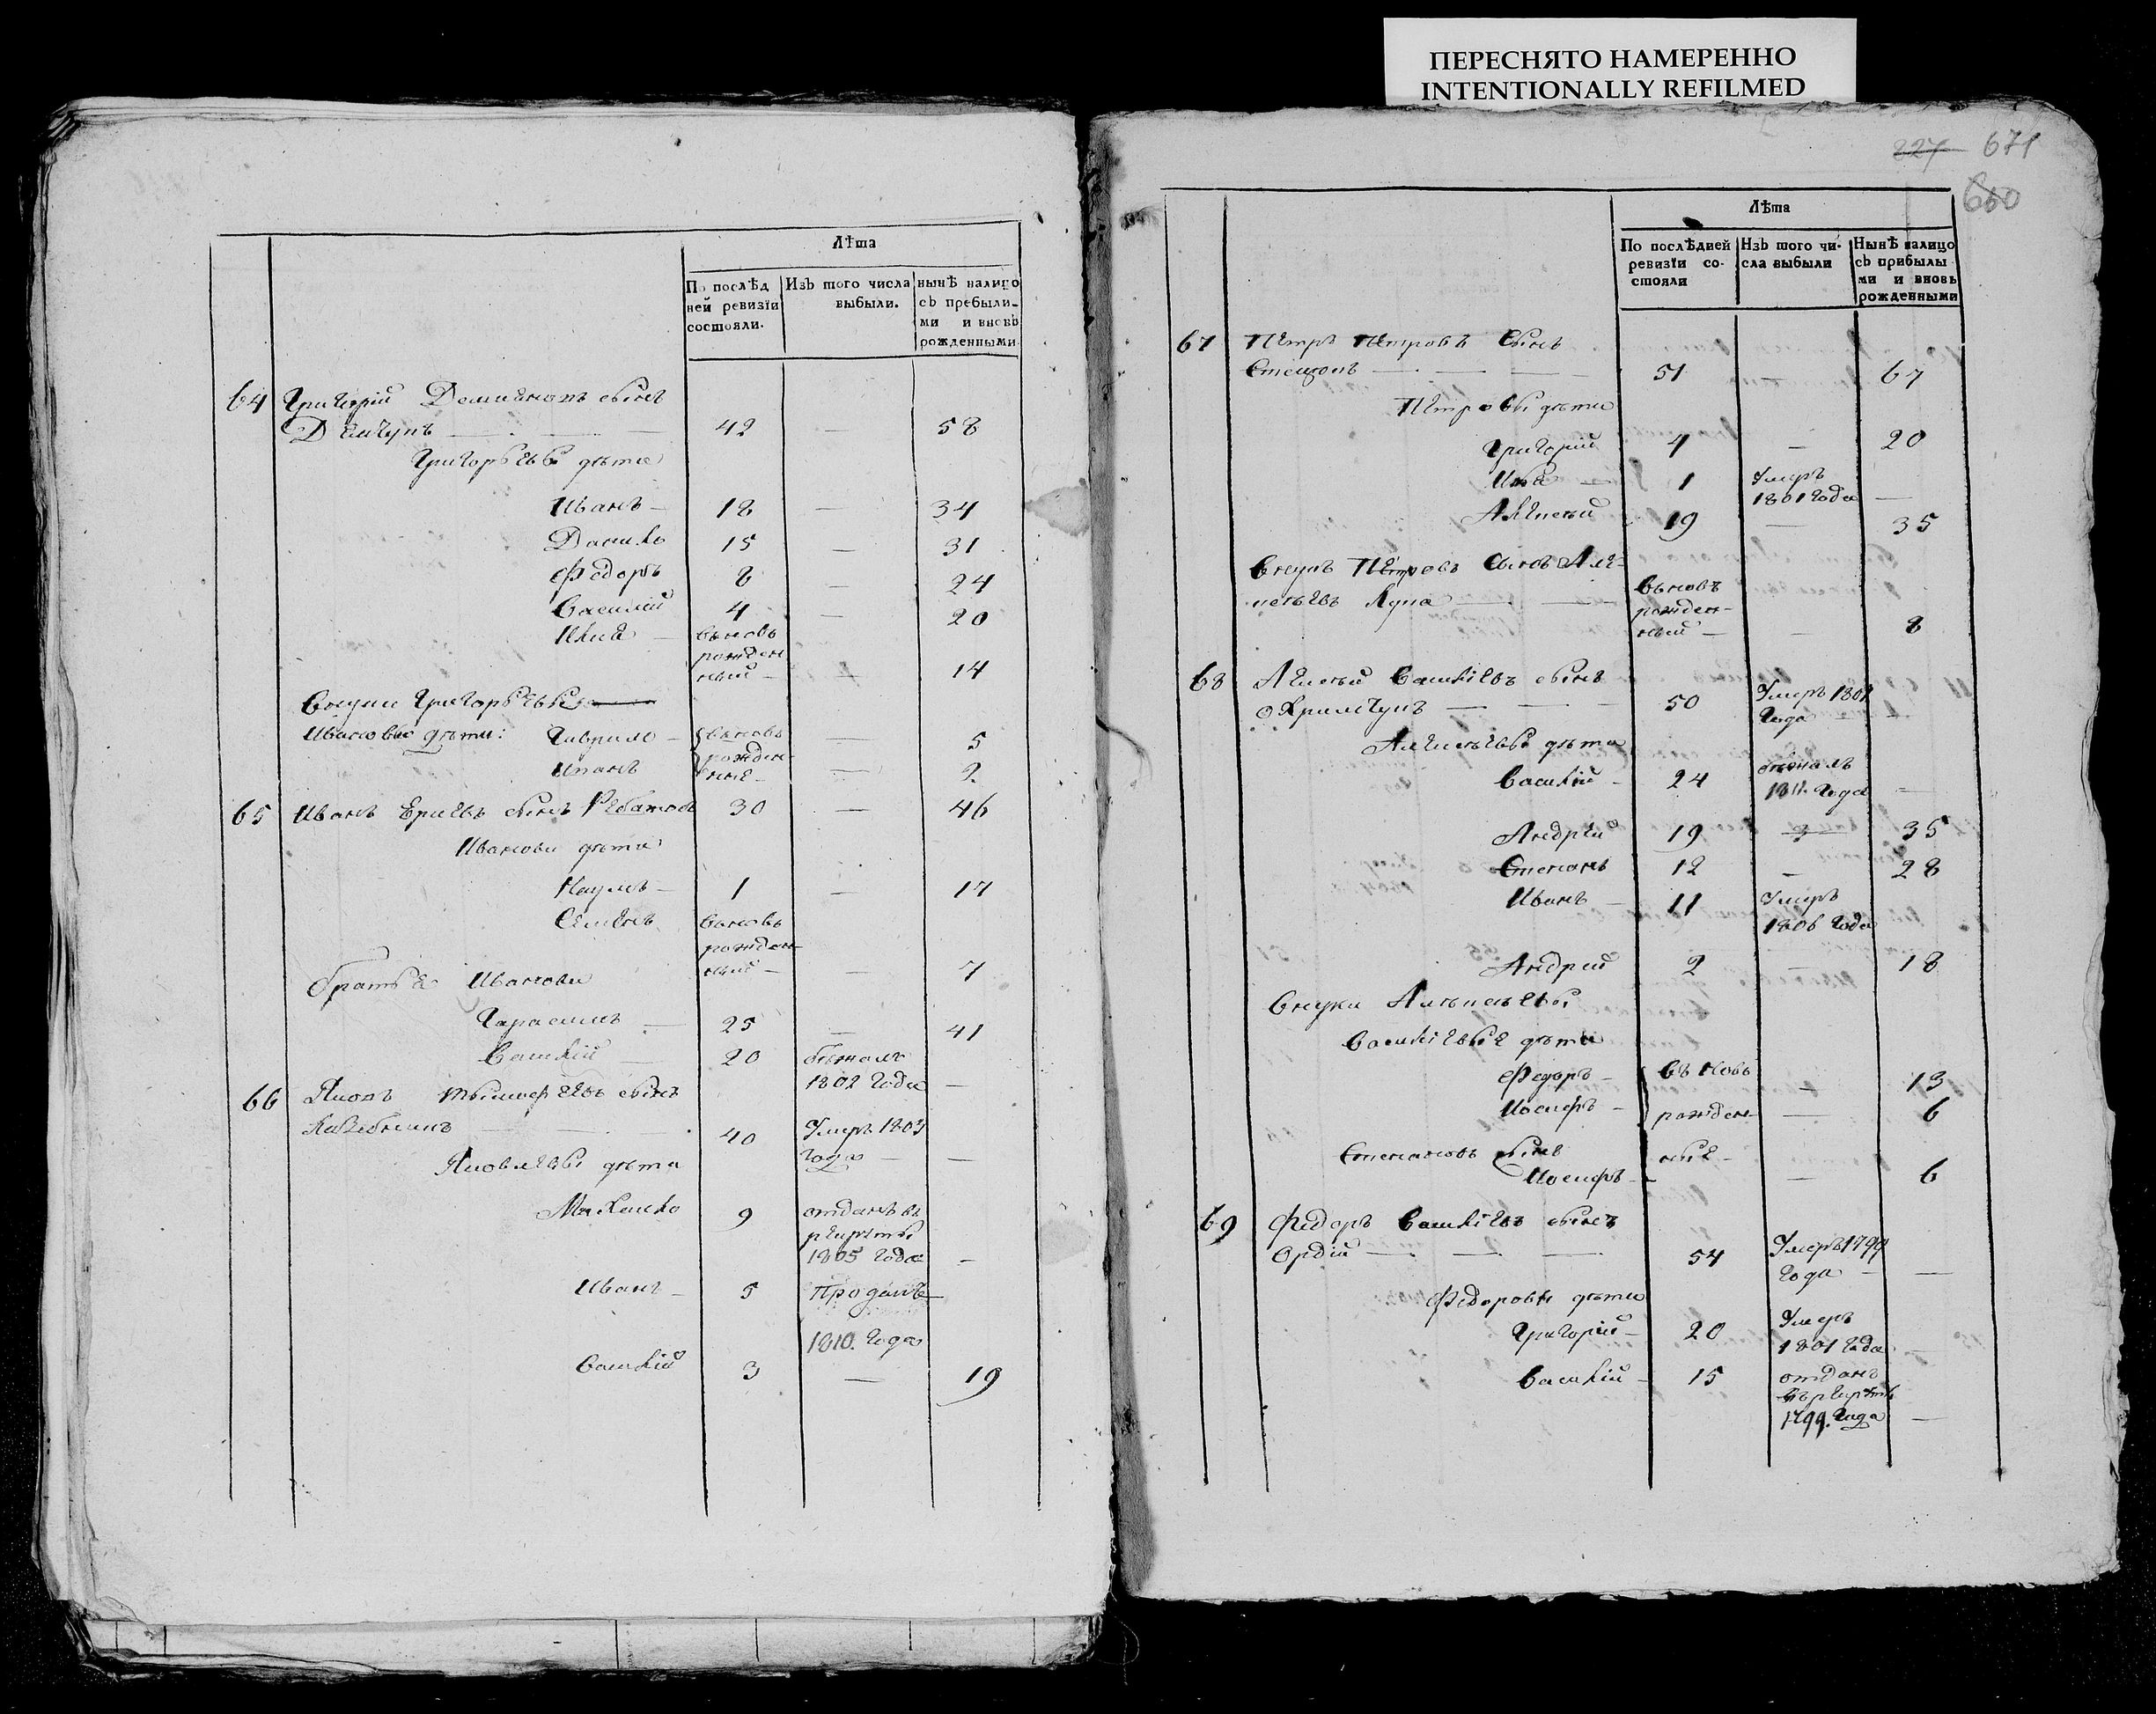 ПЕРЕСНЯТО НАМЕРЕННО
INTENTIONALLY REFILMED
Лѣта
По послѣд
ней ревизїи
состояли.
Изъ того числа
выбыли.
нынѣ налицо
съ пребыли-
ми и вновь
рожденными
64 Григорій Демиановъ сынъ
42 — 58
Григорьевы дѣти
Иванъ — 18 — 34
Данило 15 — 31
Федоръ 8 — 24
Василій 4 — 20
Илиа — вновь
рожден
ный — — 14
Внуки Григорьевы
Ивановы дѣти: Гаврило — вновь — 5
рожден
Иванъ ные — — 2
65 Иванъ сынъ 30 — 46
Ивановы дѣти
Наумъ — 1 — 17
Семенъ вновь
рожден
ный — — 7
братья Ивановы
Гарасимъ — 25 — 41
Василій — 20 бѣжалъ
1802 года —
66 Яковъ сынъ
40 Умеръ 1803
года — —
Яковлевы дѣти
9 отданъ въ
рекруты
1805 года —
Иванъ — 5 Проданъ —
1810. года
Василій 3 — 19
227 671
660
Лѣта
По послѣдней
ревизїи со-
стояли
Изъ того чи-
сла выбыли
Нынѣ налицо
съ прибылы
ми и вновь
рожденными
67 Петръ Петровъ сынъ
51 — 67
Петровы дѣти
Григорій 4 — 20
1 Умеръ
1801 года —
Алексѣй 19 — 35
Внукъ Петровъ сынъ
вновь
рожден-
ный — — 8
68 Алексѣй Василіевъ сынъ
50 Умеръ
года —
Алексѣевы дѣти
Василій — 24 бѣжалъ
1811. года —
Андрей 19 — 35
Степанъ 12 — 28
Иванъ — 11 Умеръ
1806 года
Андрей 2 — 18
Внуки Алексѣевы
Василіевы дѣти
Федоръ — въ новь — 13
Іосифъ — рожден — 6
Степановъ сынъ ные —
Іосифъ — — 6
69 Федоръ Василіевъ сынъ
Ордій — 54 Умеръ 1799
года — —
Федоровы дѣти
Григорій — 20 Умеръ
1801 года —
Василій — 15 отданъ
въ рекруты
1799. года —